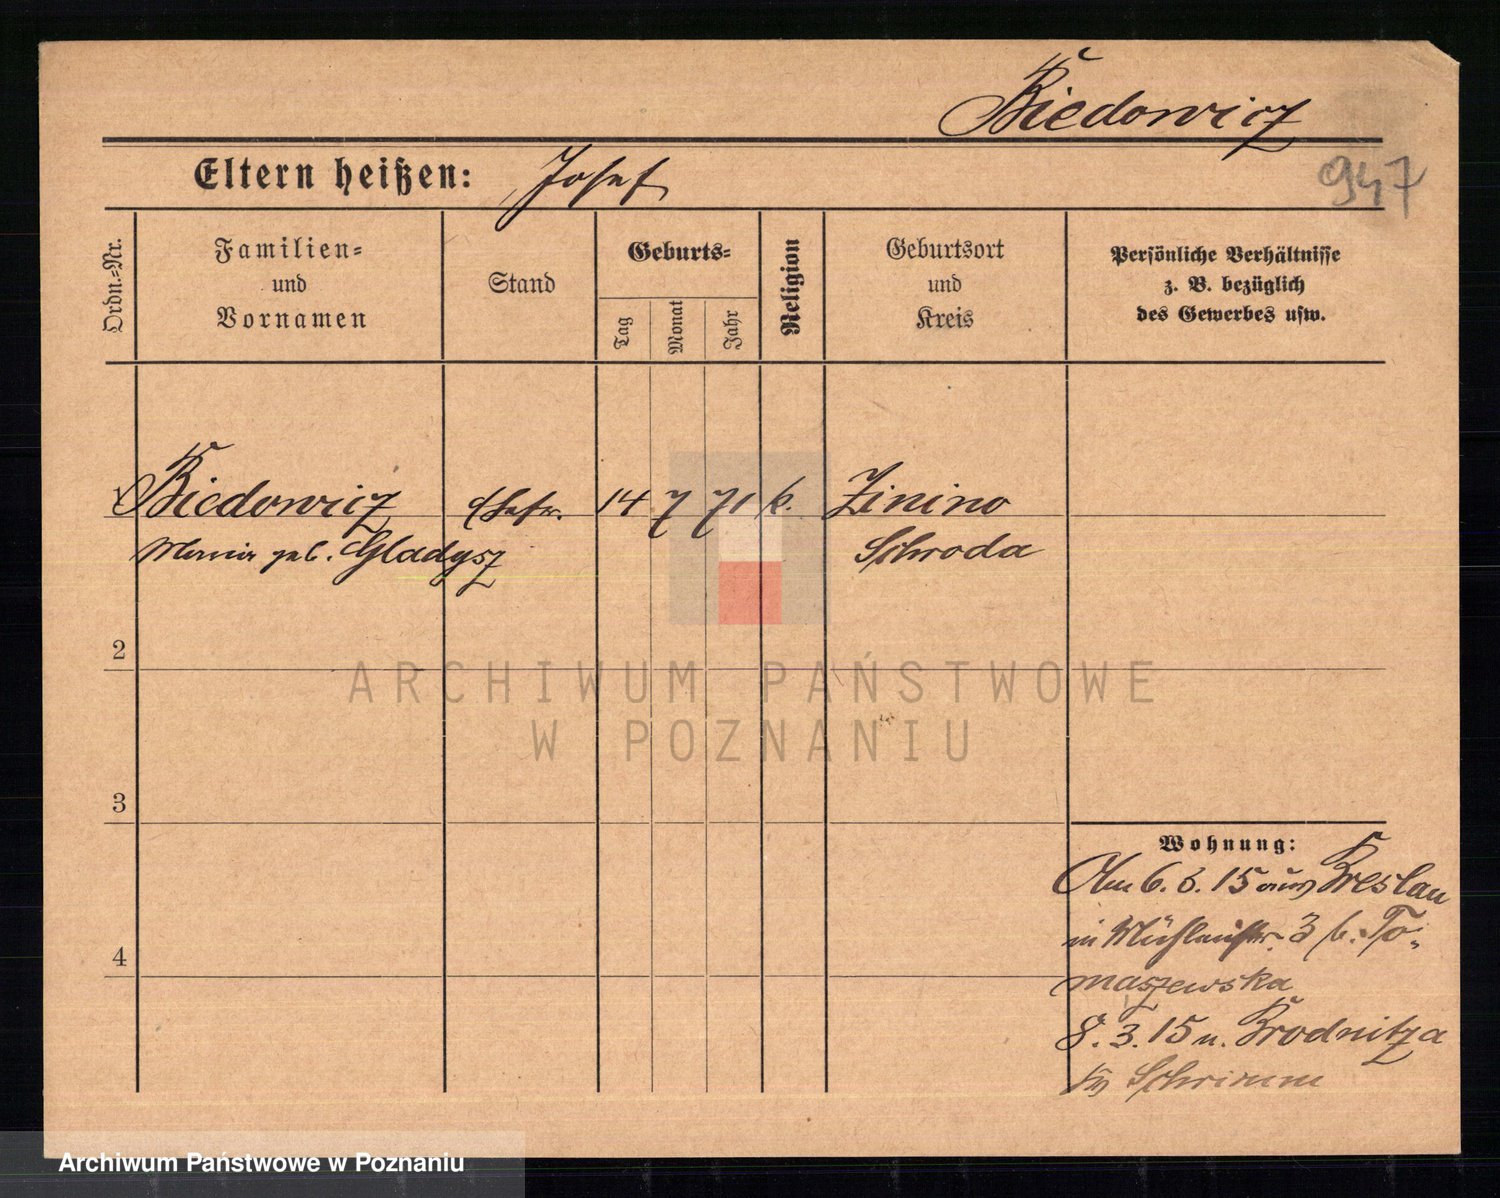 Biedowicz
947
Eltern heißen: Josef
Ordn.-Nr.
Familien-
und
Vornamen
Stand
Geburts-
Tag
Monat
Jahr
Religion
Geburtsort
und
Kreis
Persönliche Verhältnisse
z. B. bezüglich
des Gewerbes usw.
Biedowicz 14 7 71 k. Zinino
Maria geb. Gladysz Schroda
2
ARCHIWUM PAŃSTWOWE
W POZNANIU
3
Wohnung:
Am 6. 3. 15 aus Breslau
in Mühlenstr. 3 b. To-
4
maszewska
8. 3. 15 n. Brodnitza
Schrimm
Archiwum Państwowe w Poznaniu